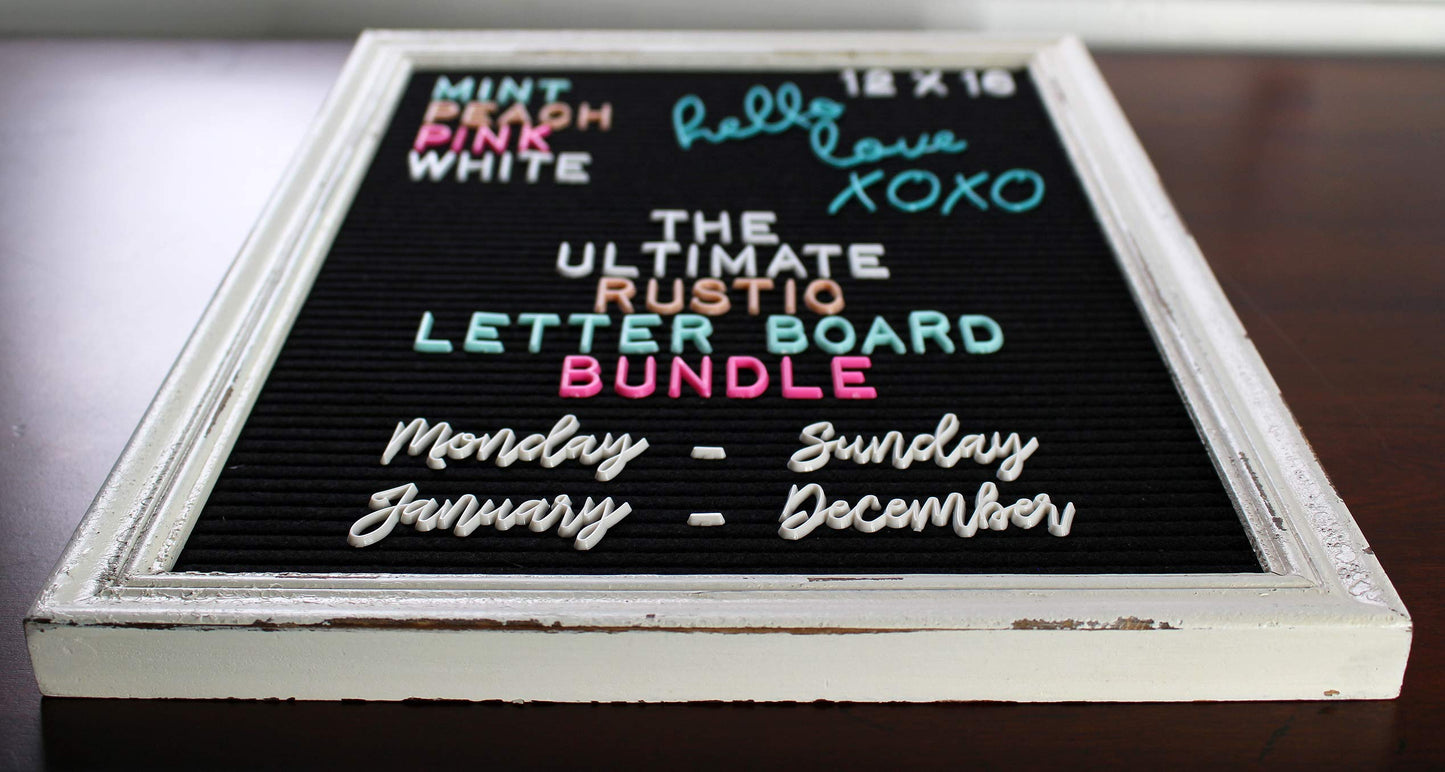 MINT
PEACH
PINK
WHITE
12 X 16
hello
love
XOXO
THE
ULTIMATE
RUSTIC
LETTER BOARD
BUNDLE
Monday - Sunday
January - December